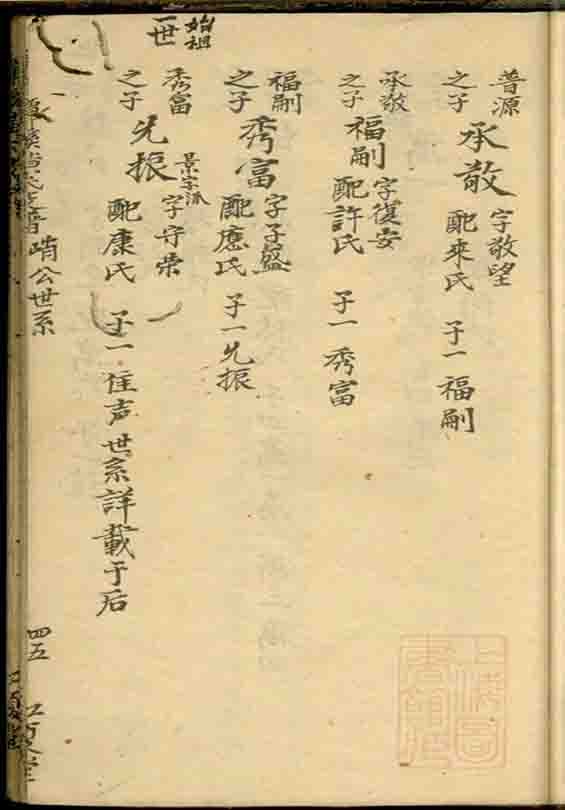 普源之子
承敬
字敬望
配來氏 子一福嗣
承敬之子
福嗣
字復安
配許氏 子一秀富
福嗣之子
秀富
字子盛
配應氏 子一允振
始祖
一世
秀富之子
允振
景字派
字守荣
配康氏 子一
佳声世系詳載于后
公世系
四五
上海圖書館藏